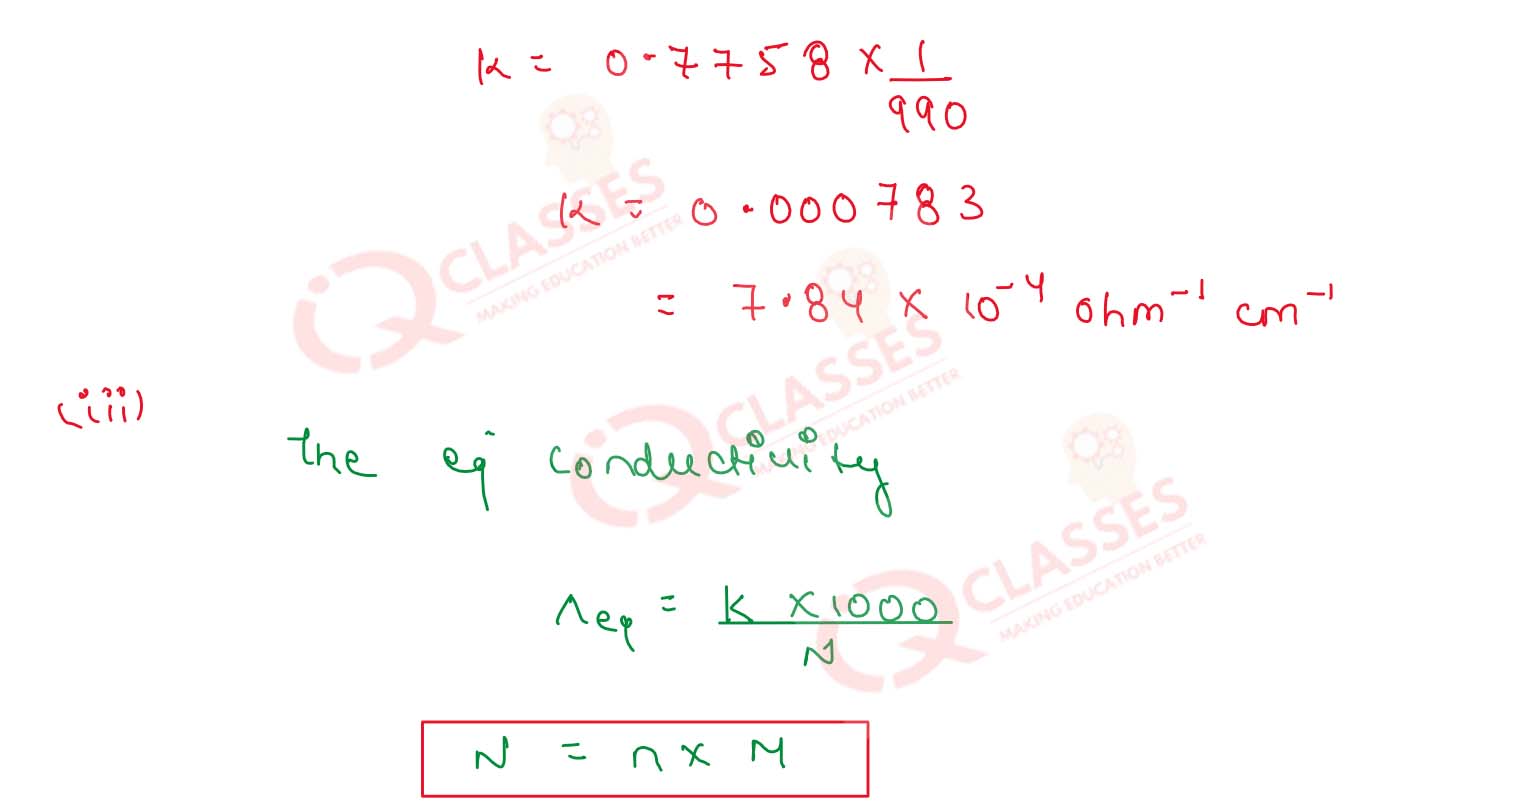 K = 0.7758 × 1/990
K = 0.000783
= 7.84 × 10⁻⁴ ohm⁻¹ cm⁻¹
(iii)
the eq conductivity
Λeq = K × 1000 / N
N = n × M
iQ CLASSES
MAKING EDUCATION BETTER
iQ CLASSES
MAKING EDUCATION BETTER
iQ CLASSES
MAKING EDUCATION BETTER